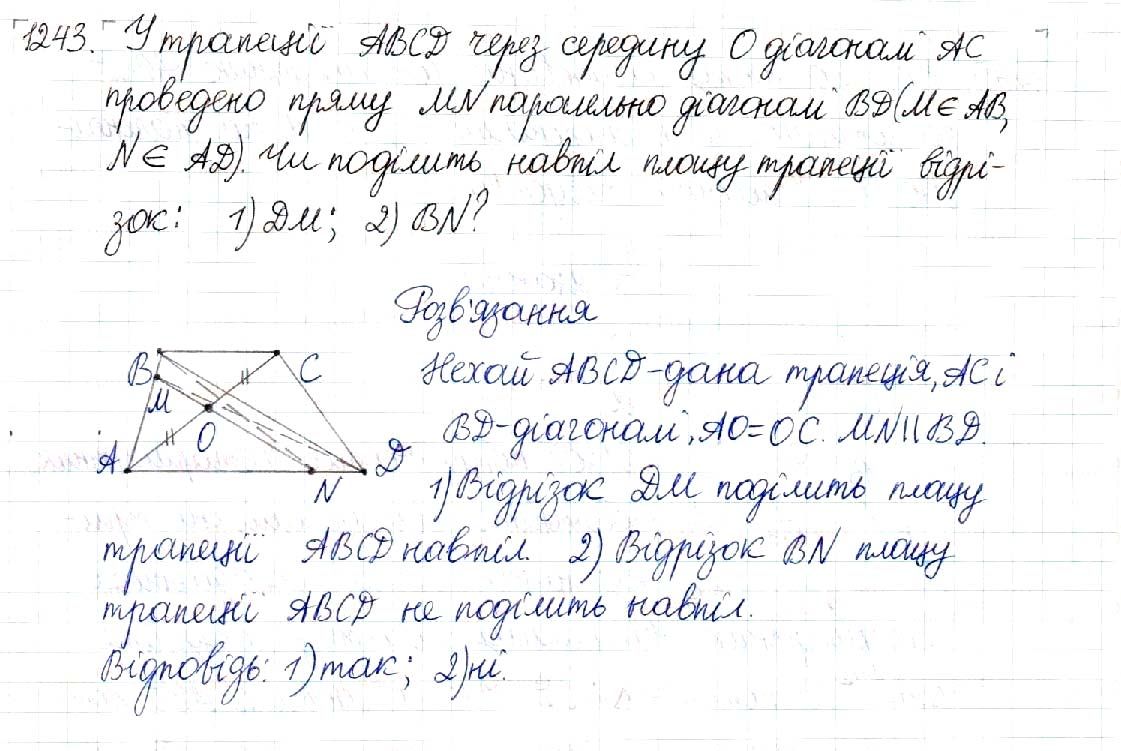 1243. У трапеції ABCD через середину O діагоналі AC
проведено пряму MN паралельно діагоналі BD (M ∈ AB,
N ∈ AD). Чи поділить навпіл площу трапеції відрі-
зок: 1) DM; 2) BN?
Розв'язання
B
C
M
O
A
D
N
Нехай ABCD - дана трапеція, AC і
BD - діагоналі, AO = OC. MN || BD.
1) Відрізок DM поділить площу
трапеції ABCD навпіл. 2) Відрізок BN площу
трапеції ABCD не поділить навпіл.
Відповідь: 1) так; 2) ні.